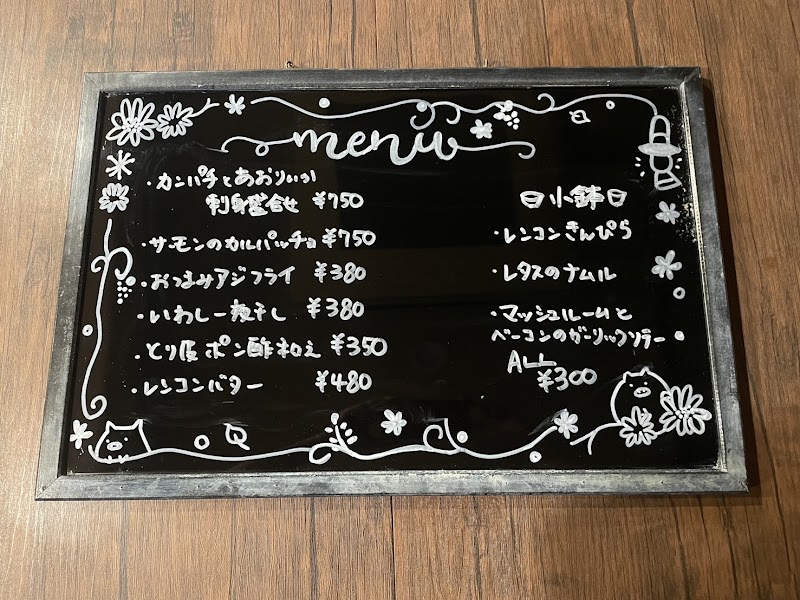 menu
・カンパチとあおりいか
刺身盛合せ ¥750
・サーモンのカルパッチョ ¥750
・おつまみアジフライ ¥380
・いわし一夜干し ¥380
・とり皮ポン酢和え ¥350
・レンコンバター ¥480
日小鉢日
・レンコンきんぴら
・レタスのナムル
・マッシュルームと
ベーコンのガーリックソテー
ALL
¥300